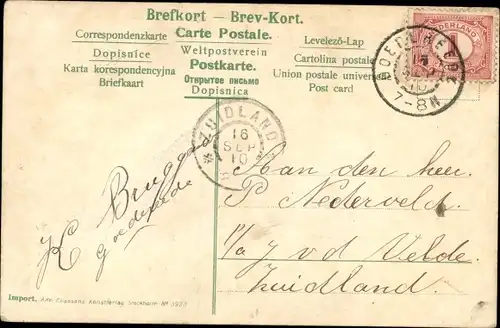 Brefkort — Brev-Kort.
Correspondenzkarte Carte Postale. Levelező-Lap
Dopisnice Weltpostverein Cartolina postale
Karta korespondencyjna Postkarte. Union postale univers
Briefkaart Открытое письмо Post card
Dopisnica
NEDERLAND
1
GOEDEREEDE
SEP
10
7-8N
ZUIDLAND
16
SEP
10
K Bruggerd
Goedereede
Aan den heer
P Nederveld
p/a J v d Velde
Zuidland.
Import, Axel Eliassons Konstförlag Stockholm No